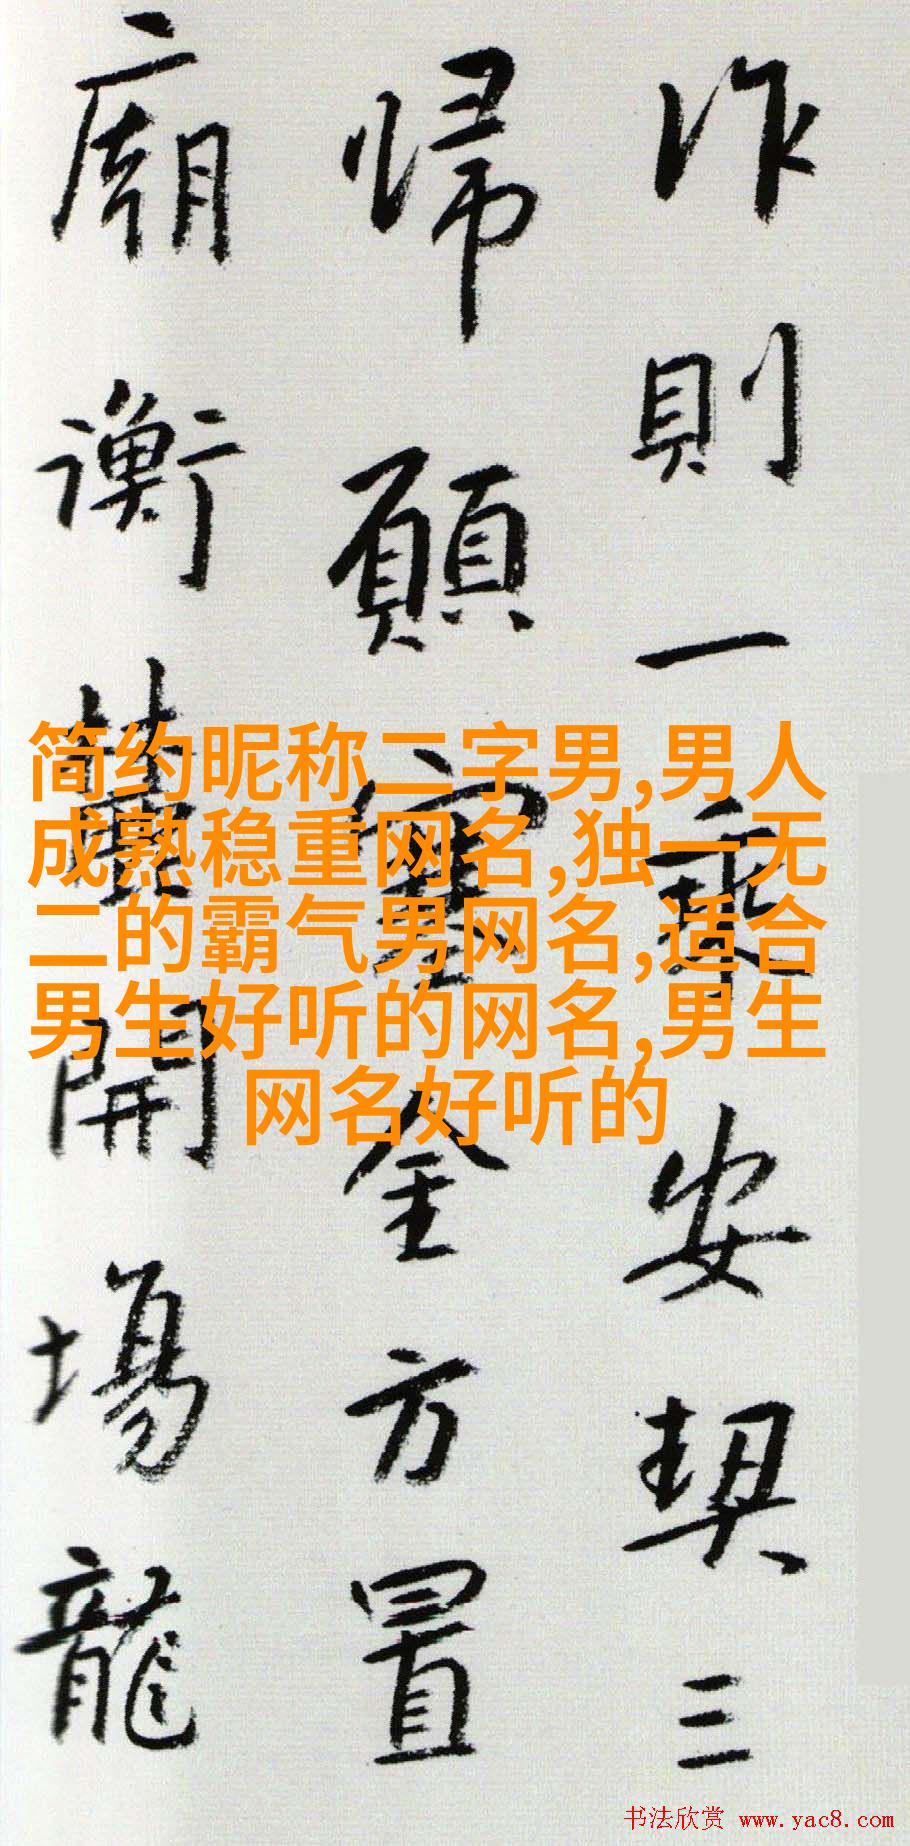 作則一乘安契三
歸願寶全方置
廟衡英開場龍
简约昵称二字男,男人
成熟稳重网名,独一无
二的霸气男网名,适合
男生好听的网名,男生
网名好听的
书法欣赏 www.yac8.com